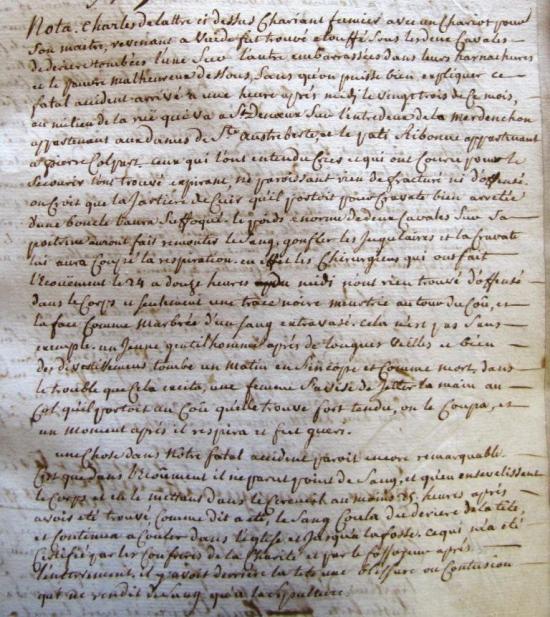 Nota. Charles delattre ci dessus Chariant fumier avec un Chariot pour
Son maitre, revenant a Vuide fut trouvé etouffé Sous les deux Cavales
de deriere tombées l'une Sur l'autre embarrassées dans leurs harnachures
et le pauvre malheureux dessous, Sans qu'on puisse bien expliquer ce
fatal accident arrivé a une heure après midi le vingt trois de Ce mois,
au milieu de la rue qui va a St Devaux Sur l'entredeux de la
appartenant aux Dames de Ste Austreberte, et le pati Ribonne appartenant
a pierre Colpart. Ceux qui l'ont entendu Crier et qui ont Couru pour le
Secourir l'ont trouvé expirant, ne paroissant rien de fracturé ni d'offensé.
on Croit que la Jartiere de Cuir qu'il portoit pour Cravate bien arretée
d'une boucle l'aura Suffoqué. le poids enorme de deux Cavales Sur Sa
poitrine auront fait remonter le Sang, gonfler les Jugulaires et la Cravate
lui aura Coupé la respiration. en effet les Chirurgiens qui ont fait
l'Ecouement le 24 a douze heures midi n'ont rien trouvé d'offensé
dans le Corps et Seulement une trace noire meurtrie autour du Coû, et
la face Comme marbrée d'un Sang extravasé. Cela n'est pas Sans
exemple. un Jeune gentilhomme après de longues Veilles et bien
des divertissemens, tombe un matin en Sincope et Comme mort, dans
le trouble que Cela excita, une femme S'avise de Jetter la main au
Col qu'il portoit au Coû qu'elle trouve fort tendu, on le Coupa, et
un moment après il respira et fut gueri.
une Chose dans Nôtre fatal accident paroit encore remarquable
C'est que dans l'Ecoûement il ne parut point de Sang, et qu'en ensevelissant
le Corps et en le mettant dans le Cercueil au moins 25 heures après
avoir été trouvé, Comme dit a été, le Sang Coula du deriere de la tête,
et Continua a Couler dans l'eglise et Jusqu'a la fosse. Ce qui m'a été
Certifié par les Confreres de la Charité et par le fossoyeur après
l'enterrement. il y avoit derriere la tête une blessure ou Contusion
qui ne rendit de Sang qu'a la Sepulture.